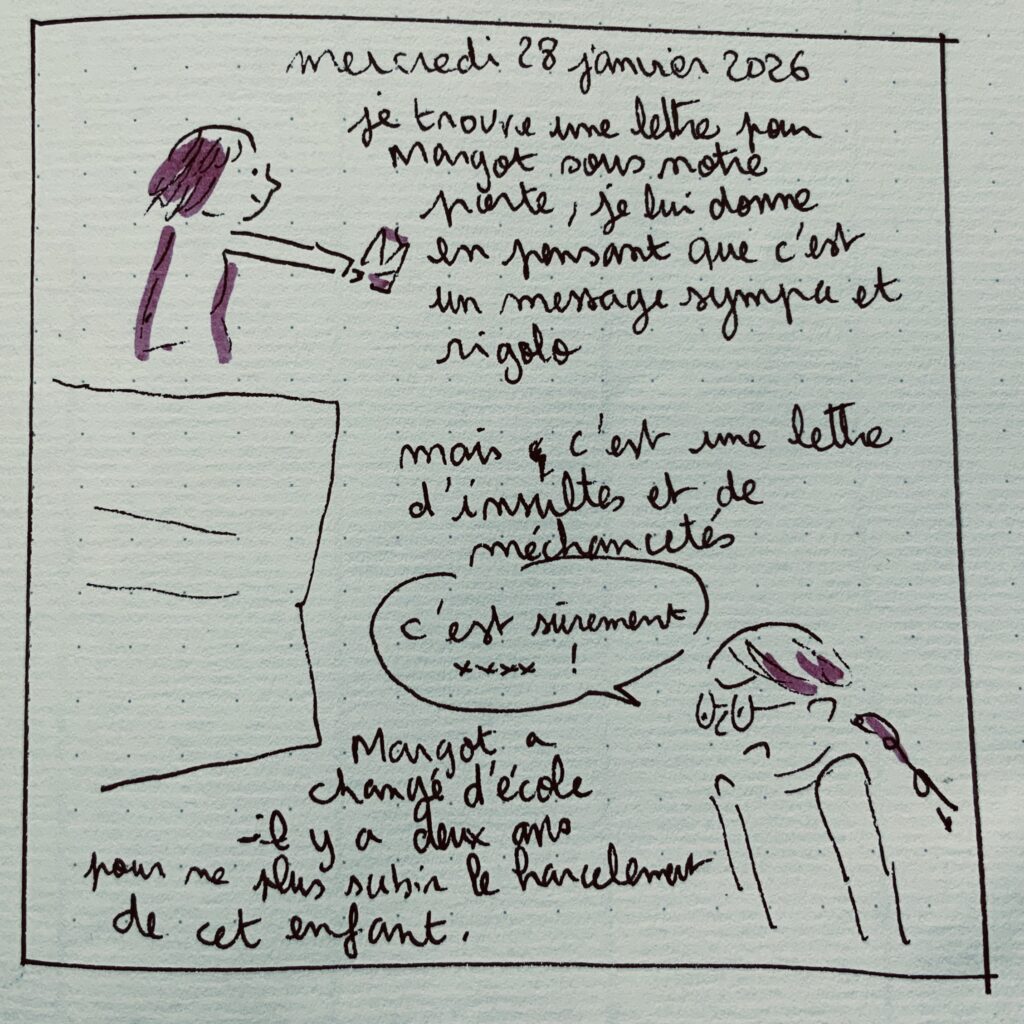 mercredi 28 janvier 2026
je trouve une lettre pour
Margot sous notre
porte, je lui donne
en pensant que c'est
un message sympa et
rigolo
mais c'est une lettre
d'insultes et de
méchancetés
c'est sûrement
xxxx !
Margot a
changé d'école
il y a deux ans
pour ne plus subir le harcelement
de cet enfant.